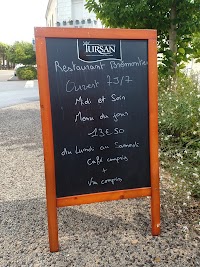 TURSAN
Restaurant Brémontier
Ouvert 7J/7
Midi et Soir
Menu du jour
13€50
du Lundi au Samedi
Café compris
+
Vin compris